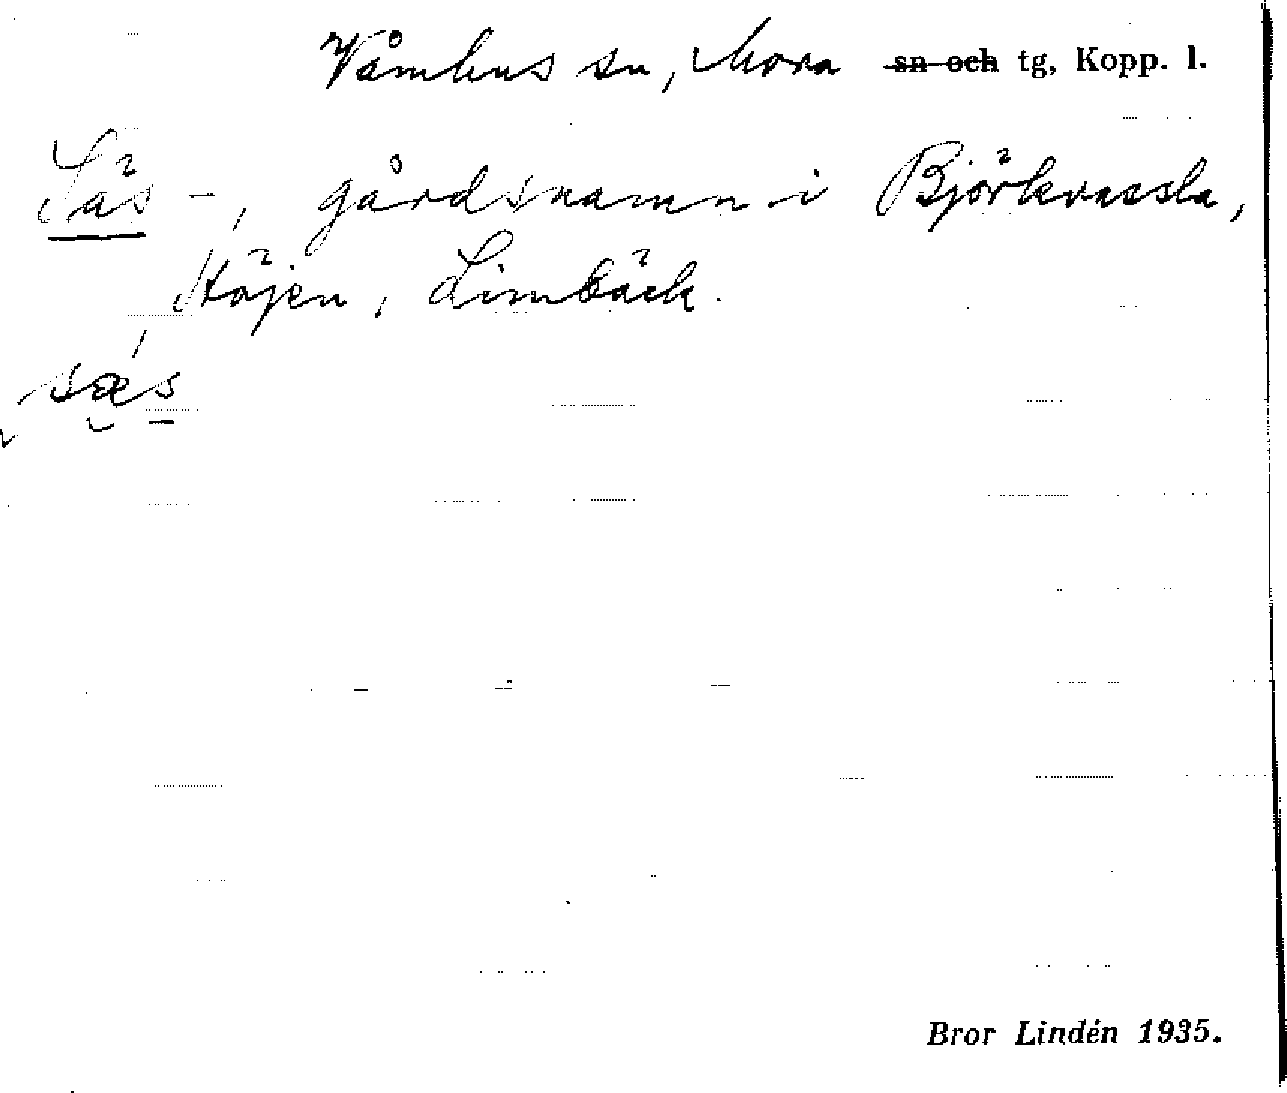 Våmhus sn, Mora sn och tg, Kopp. l.
Säs-, gårdsnamn i Björkvassla,
Höjen, Limbäck.
sæs
Bror Lindén 1935.